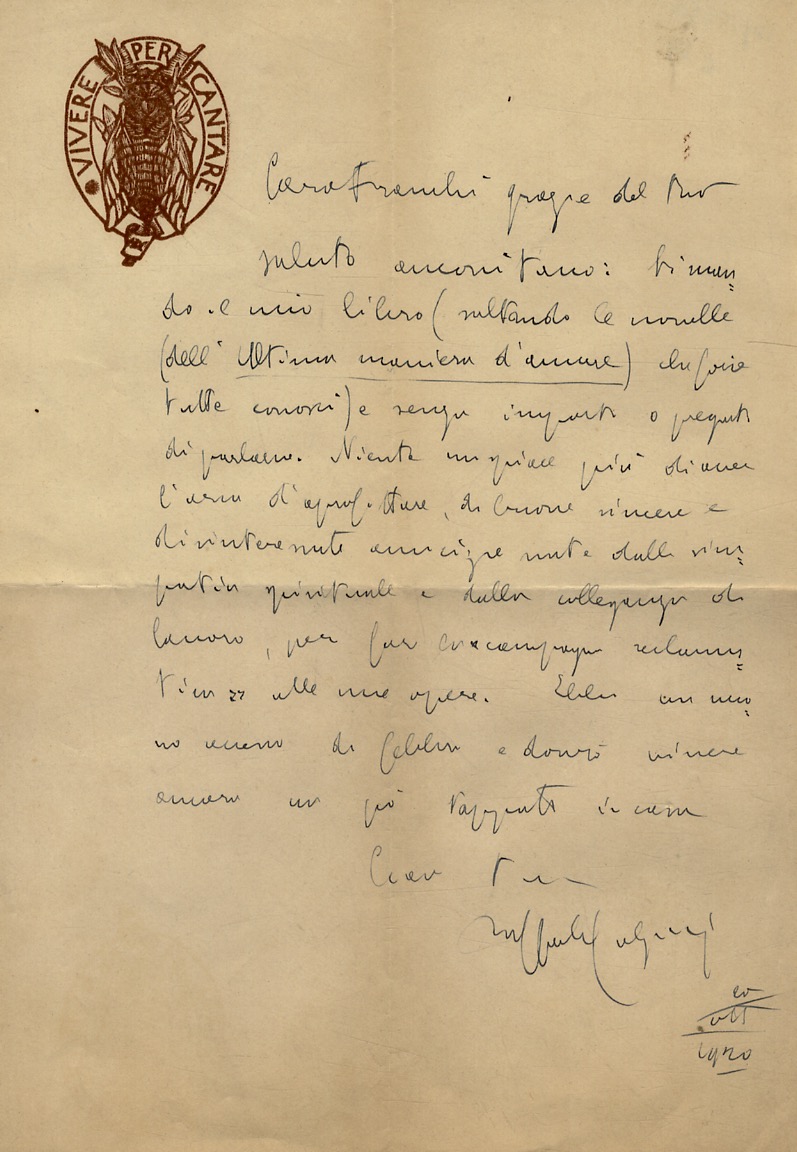 VIVERE PER CANTARE
Caro Franchi grazie del tuo
saluto anconitano: ti man=
do il mio libro (saltando le novelle
(dell'Ultima maniera d'amare) che forse
tutte conosci) e senza importi o pregarti
di parlarne. Niente mi spiace più di aver
l'aria d'aprofittare, di buone sincere e
disinteressate amicizie nate dalla sim=
patia spirituale e dalla colleganza di
lavoro, per far accompagna reclamis=
tica alle mie opere. Ebbi un nuo
vo accesso di febbre e dovrò vivere
ancora un pò tappato in casa
Ciao tuo
Raffaele Calzini
20
ott
1920